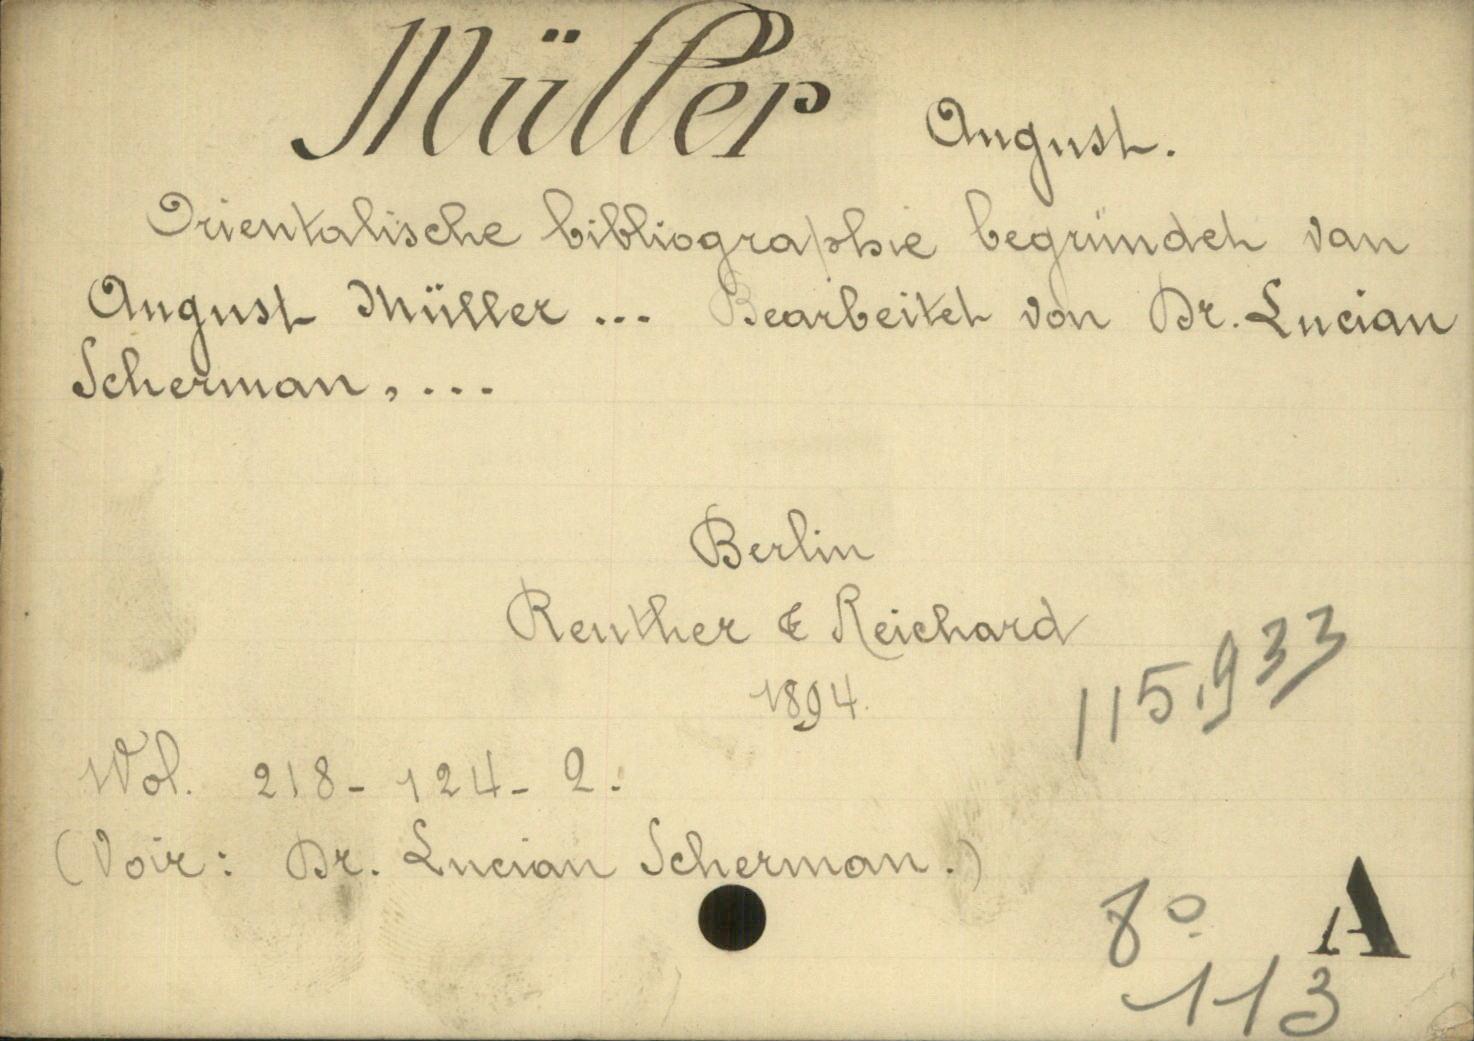 Müller August.
Orientalische bibliographie begründet van
August Müller ... Bearbeitet von Dr. Lucian
Scherman, ...
Berlin
Reuther & Reichard
1894.
115,933
Vol. 218-124-2.
(Voir: Dr. Lucian Scherman.)
8° A
113